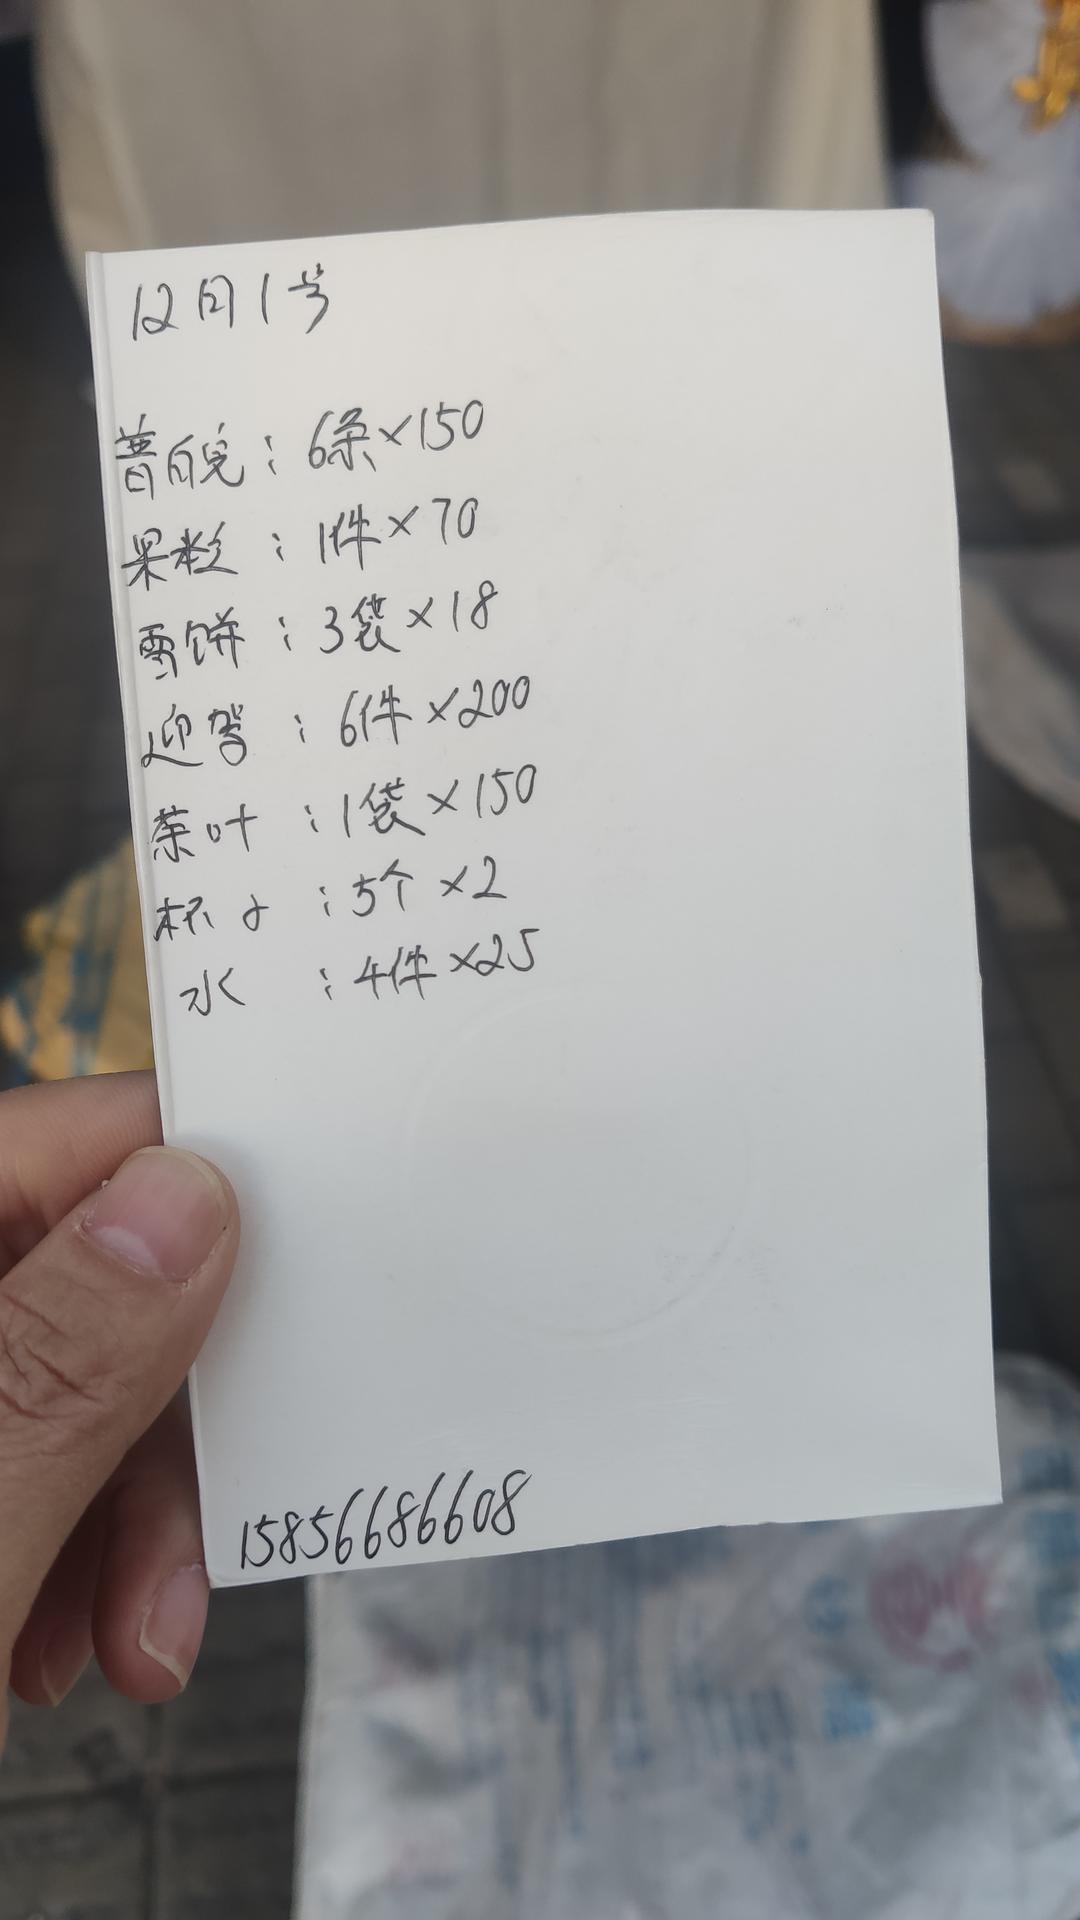 12月1号
普白皖：6条×150
果粒：1件×70
雪饼：3袋×18
迎驾：6件×200
茶叶：1袋×150
杯子：5个×2
水：4件×25
15856686608